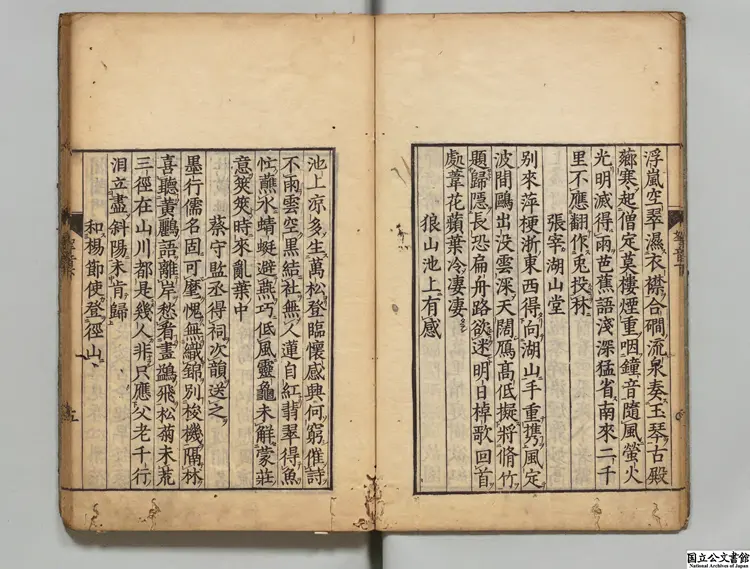 浮嵐空翠濕衣襟合磵流泉奏玉琴古殿
薌寒起僧定莫樓煙重咽鐘音隨風螢火
光明滅得雨芭蕉語淺深猛省南來二千
里不應翻作兎投林
張宰湖山堂
別來萍梗浙東西得向湖山手重携風定
波間鷗出没雲深天闊鴈高低擬將脩竹
題歸隱長恐扁舟路欲迷明日棹歌回首
處葦花蘋葉冷凄凄
狼山池上有感
池上凉多生萬松登臨懷感興何窮催詩
不雨雲空黒結社無人蓮自紅翡翠得魚
忙蘸水蜻蜓避燕巧低風靈龜未解蒙莊
意筴筴時來亂葉中
蔡守監丞得祠次韻送之
墨行儒名固可麾愧無織錦別梭機隔林
喜聽黄鸝語離岸愁看畫鷁飛松菊未荒
三徑在山川都是幾人非只應父老千行
泪立盡斜陽未肯歸
和楊節使登徑山
国立公文書館
National Archives of Japan